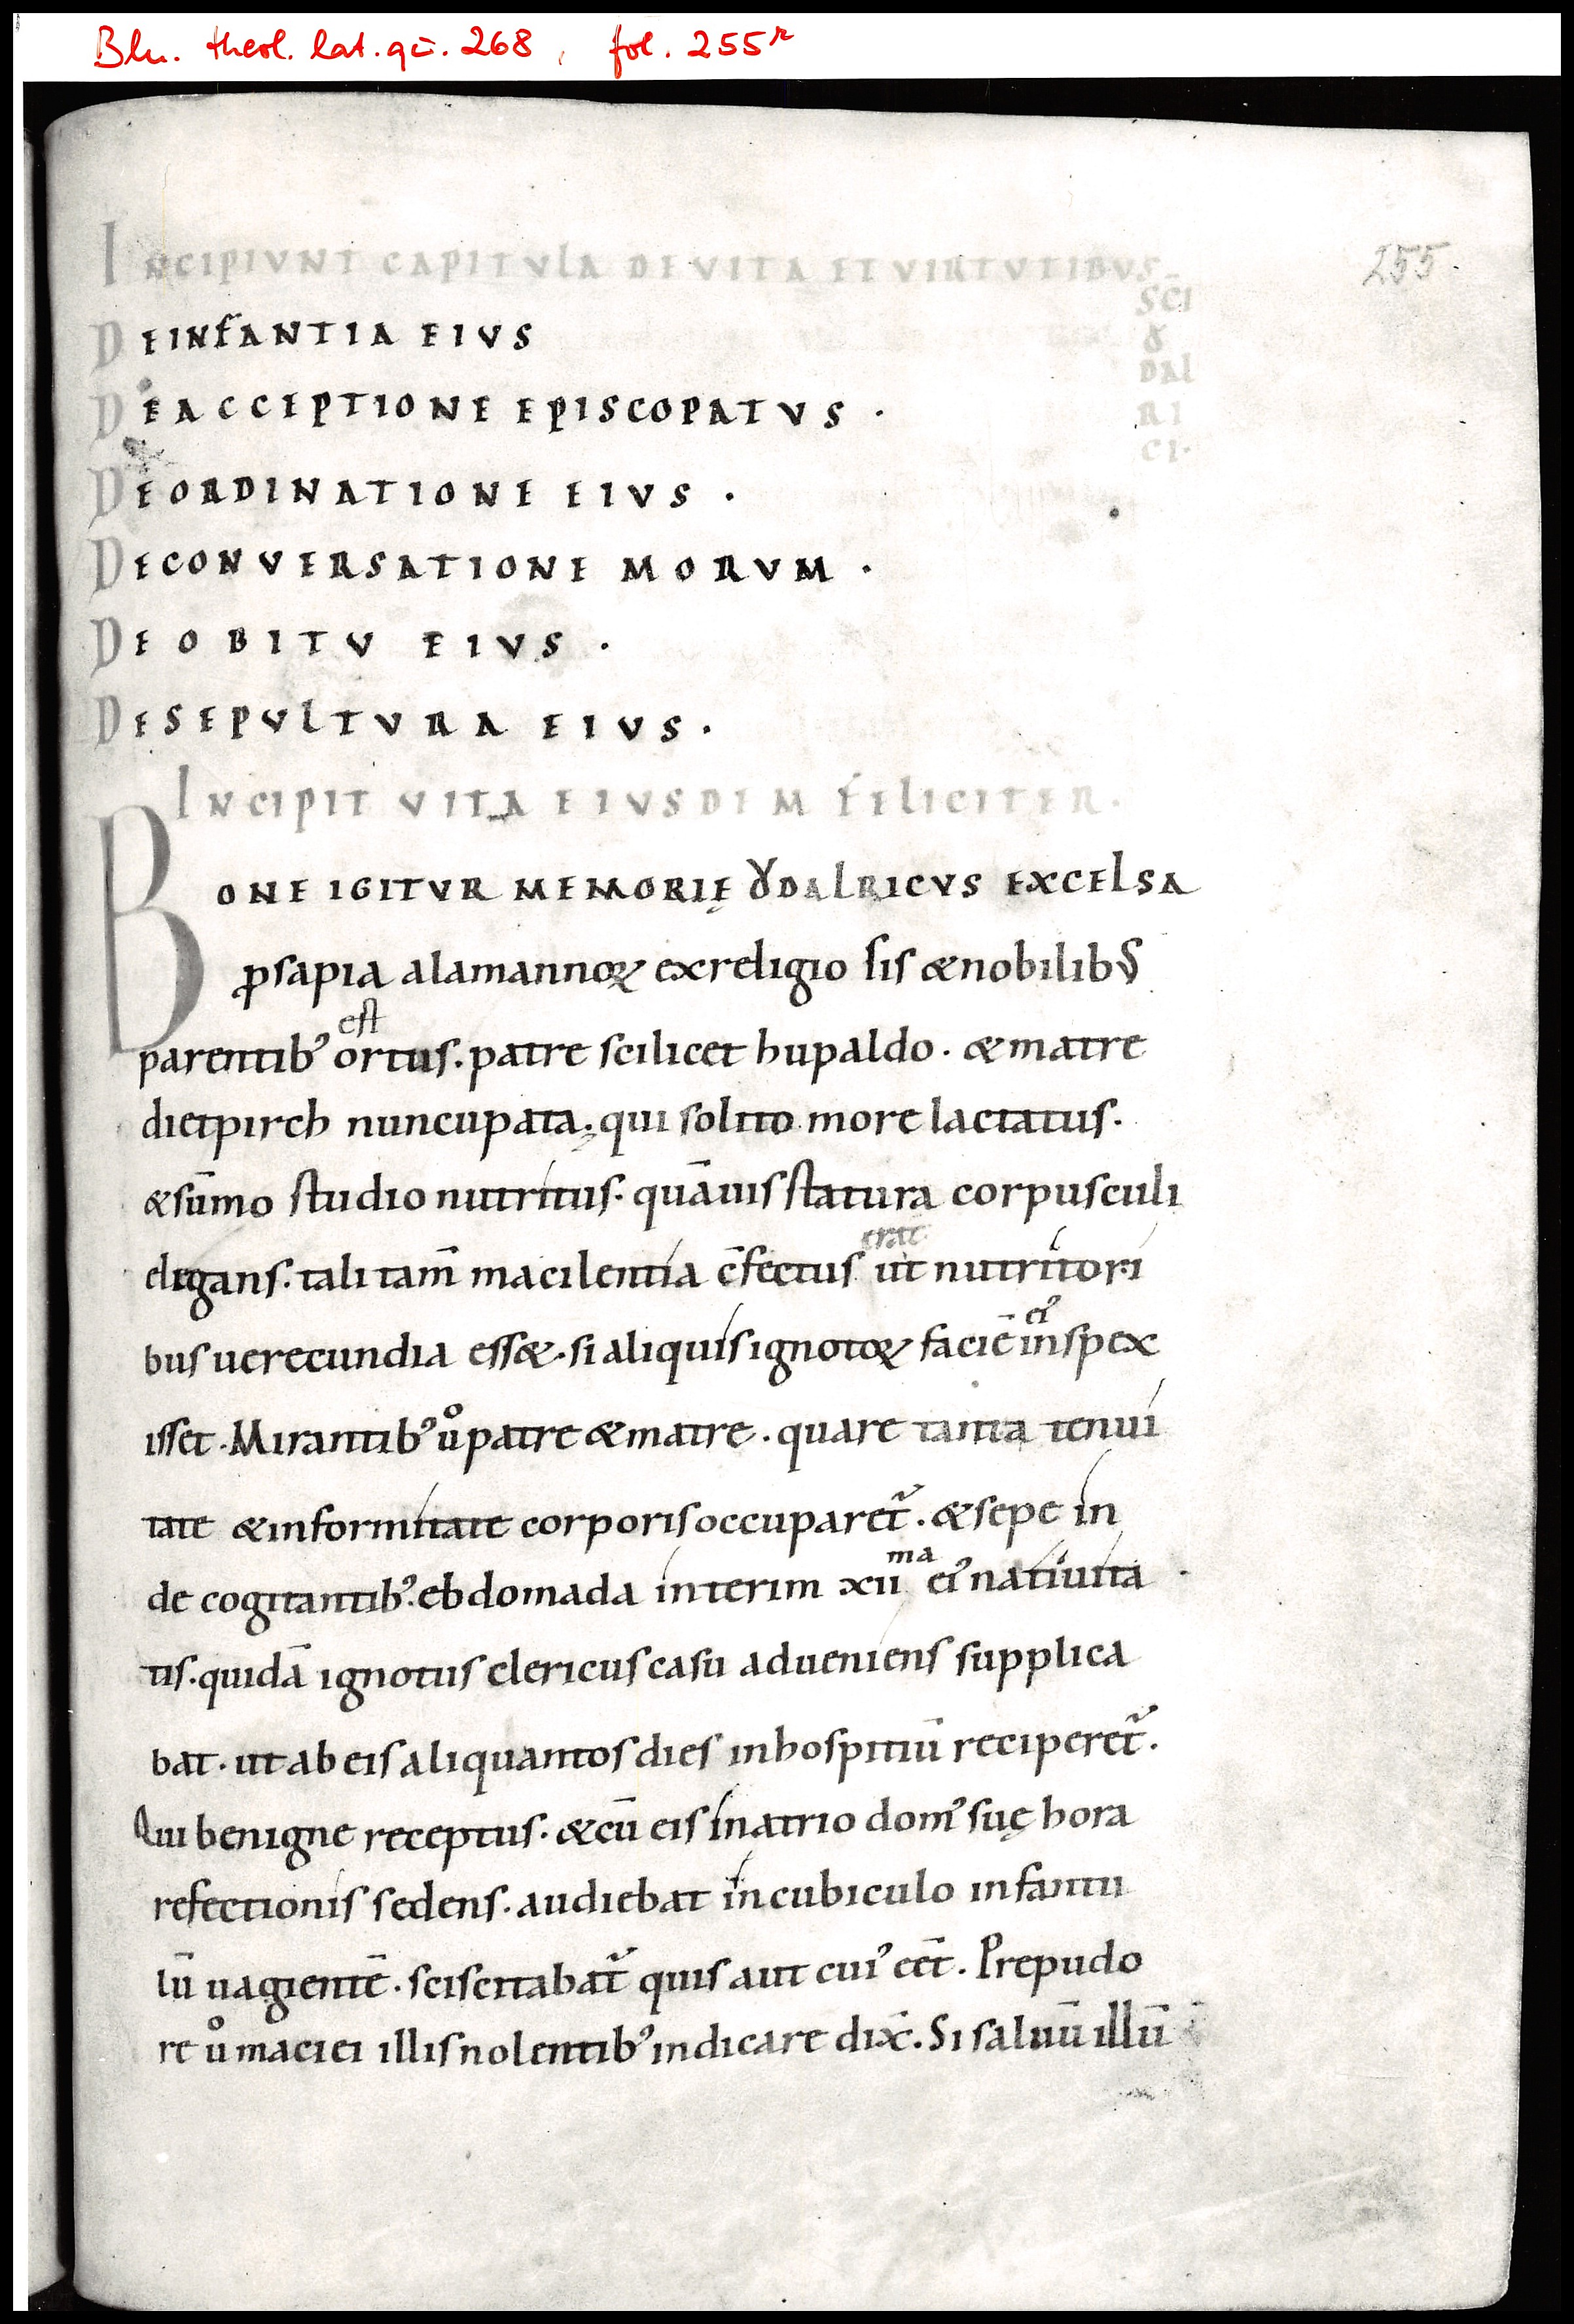 Bln. theol. lat. qu. 268, fol. 255r
255.
INCIPIVNT CAPITVLA DE VITA ET VIRTVTIBVS
SC̄I
Ȣ
DAL
RI
CI·
DE INFANTIA EIVS
DE ACCEPTIONE EPISCOPATVS ·
DE ORDINATIONE EIVS ·
DE CONVERSATIONE MORVM ·
DE OBITV EIVS ·
DE SEPVLTVRA EIVS ·
INCIPIT VITA EIVSDEM FELICITER ·
BONE IGITVR MEMORIĘ ȢDALRICVS EXCELSA
ꝓsapia alamannoꝝ ex religio sis & nobilibꝰ
est
parentibꝰ ortus. patre scilicet hupaldo · & matre
dietpirch nuncupata; qui solito more lactatus.
& sūmo studio nutritus· quāuis statura corpusculi
erat
elegans. tali tam̄ macilentia c̄fectus ut nutritori
eiꝰ
bus uerecundia ess&· si aliquis ignotoꝝ faciē inspex
isset · Mirantibꝰ ůo patre & matre · quare tanta tenui
tate & informitate corporis occuparet᷑ · & sepe in
ma
de cogitantibꝰ. ebdomada interim xii eiꝰ natiuita
tis. quidā ignotus clericus casu adueniens supplica
bat · ut ab eis aliquantos dies in hospitiū reciperet᷑.
Qui benigne receptus · & cū eis in atrio domꝰ suę hora
refectionis sedens. audiebat in cubiculo infantu
lū uagientē · sciscitabat᷑ quis aut cuiꝰ eēt. Prepudo
re ů maciei illis nolentibꝰ indicare dix̄. Si saluū illū